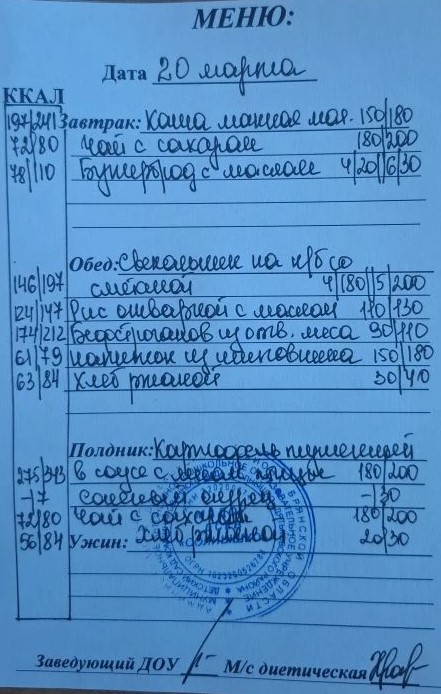 МЕНЮ:
Дата 20 марта
ККАЛ
197/241 Завтрак: Каша манная мол. 150/180
72/80 Чай с сахаром 180/200
78/110 Бутерброд с маслом 4/20//6/30
Обед: Свекольник на к/б со
146/197 сметаной 4/180//5/200
124/147 Рис отварной с маслом 110/130
174/212 Бефстроганов из отв. мяса 90/110
61/79 напиток из шиповника 150/180
63/84 Хлеб ржаной 30/40
Полдник: Картофель тушеный
275/343 в соусе с мясом птицы 180/200
-/7 соленый огурец -/30
72/80 Чай с сахаром 180/200
56/84 Ужин: хлеб ржаной 20/30
Заведующий ДОУ М/с диетическая